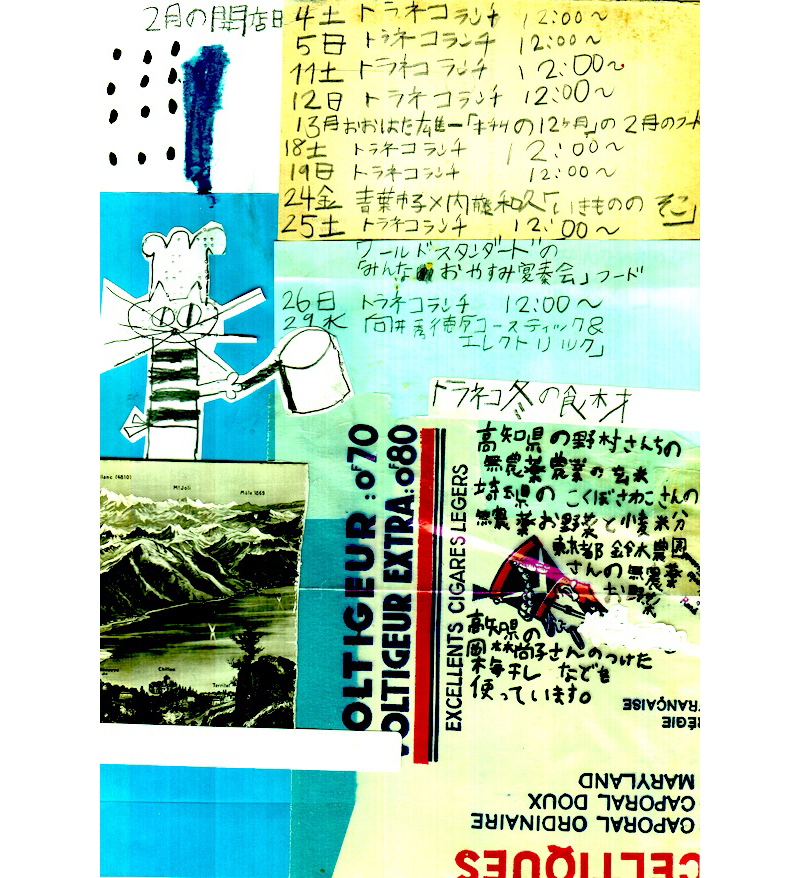 2月の開店日
4土 トラネコランチ 12:00～
5日 トラネコランチ 12:00～
11土 トラネコランチ 12:00～
12日 トラネコランチ 12:00～
13月 おおはた雄一「キチムの12ヶ月」の2月のフード
18土 トラネコランチ 12:00～
19日 トラネコランチ 12:00～
24金 青葉市子×内藤和久「いきものの そこ」
25土 トラネコランチ 12:00～
ワールドスタンダードの
「みんなのおやすみ宴奏会」フード
26日 トラネコランチ 12:00～
29水 「向井秀徳アコースティック&
エレクトリック」
トラネコ冬の食材
高知県の野村さんちの
無農薬農業の玄米
埼玉県の こくぼさわこさんの
無農薬お野菜と小麦粉
京都 鈴木農園
さんの無農薬
お野菜
高知県の
岡林尚子さんのつけた
梅干し なども
使っています。
lanc (4810)
Mt Joli
Chillon
OLTIGEUR :0F70
VOLTIGEUR EXTRA:0F80
EXCELLENTS CIGARES LEGERS
RÉGIE
FRANÇAISE
MARYLAND
CAPORAL DOUX
CAPORAL ORDINAIRE
CELTIQUES